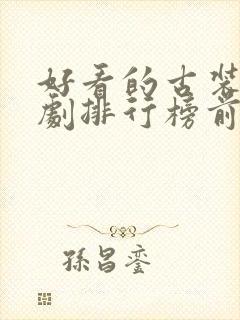 好看的古装
劇排行榜前
孫昌銮